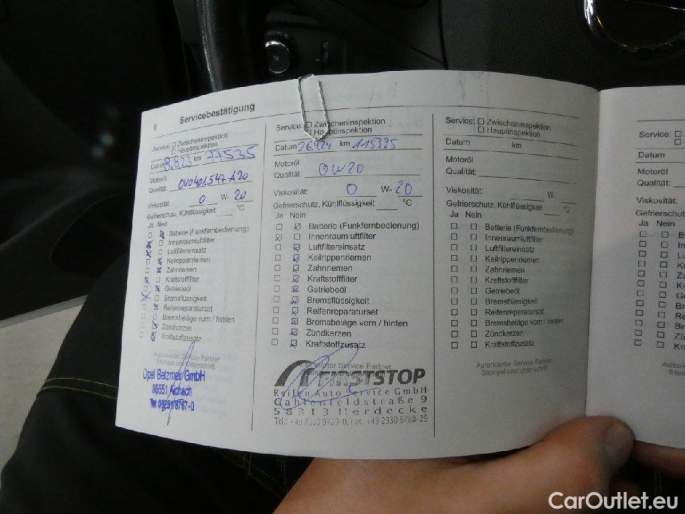 Servicebestätigung
Service: Zwischeninspektion
Hauptinspektion
Datum 8.8.23 km 77535
Motoröl
Qualität: OV0401547 A20
Viskosität: 0 W- 20
Gefrierschutz, Kühlflüssigkeit °C
Ja Nein
Batterie (Funkfernbedienung)
Innenraumluftfilter
Luftfiltereinsatz
Keilrippenriemen
Zahnriemen
Kraftstofffilter
Getriebeöl
Bremsflüssigkeit
Reifenreparaturset
Bremsbeläge vorn / hinten
Zündkerzen
Kraftstoffzusatz
Autorisierter Service Partner
Stempel und Unterschrift
GmbH
86551 Aichach
Service: Zwischeninspektion
Hauptinspektion
Datum km
Motoröl
Qualität: 0W20
Viskosität: 0 W- 20
Gefrierschutz, Kühlflüssigkeit °C
Ja Nein
Batterie (Funkfernbedienung)
Innenraumluftfilter
Luftfiltereinsatz
Keilrippenriemen
Zahnriemen
Kraftstofffilter
Getriebeöl
Bremsflüssigkeit
Reifenreparaturset
Bremsbeläge vorn / hinten
Zündkerzen
Kraftstoffzusatz
Service Partner
FIRSTSTOP
Auto Service GmbH
Gahlenfeldstraße 9
58313 Herdecke
Service: Zwischeninspektion
Hauptinspektion
Datum km
Motoröl
Qualität:
Viskosität: W-
Gefrierschutz, Kühlflüssigkeit °C
Ja Nein
Batterie (Funkfernbedienung)
Innenraumluftfilter
Luftfiltereinsatz
Keilrippenriemen
Zahnriemen
Kraftstofffilter
Getriebeöl
Bremsflüssigkeit
Reifenreparaturset
Bremsbeläge vorn / hinten
Zündkerzen
Kraftstoffzusatz
Autorisierter Service Partner
Stempel und Unterschrift
Service:
Datum
Motoröl
Qualität:
Viskosität:
Gefrierschutz
Ja Nein
CarOutlet.eu